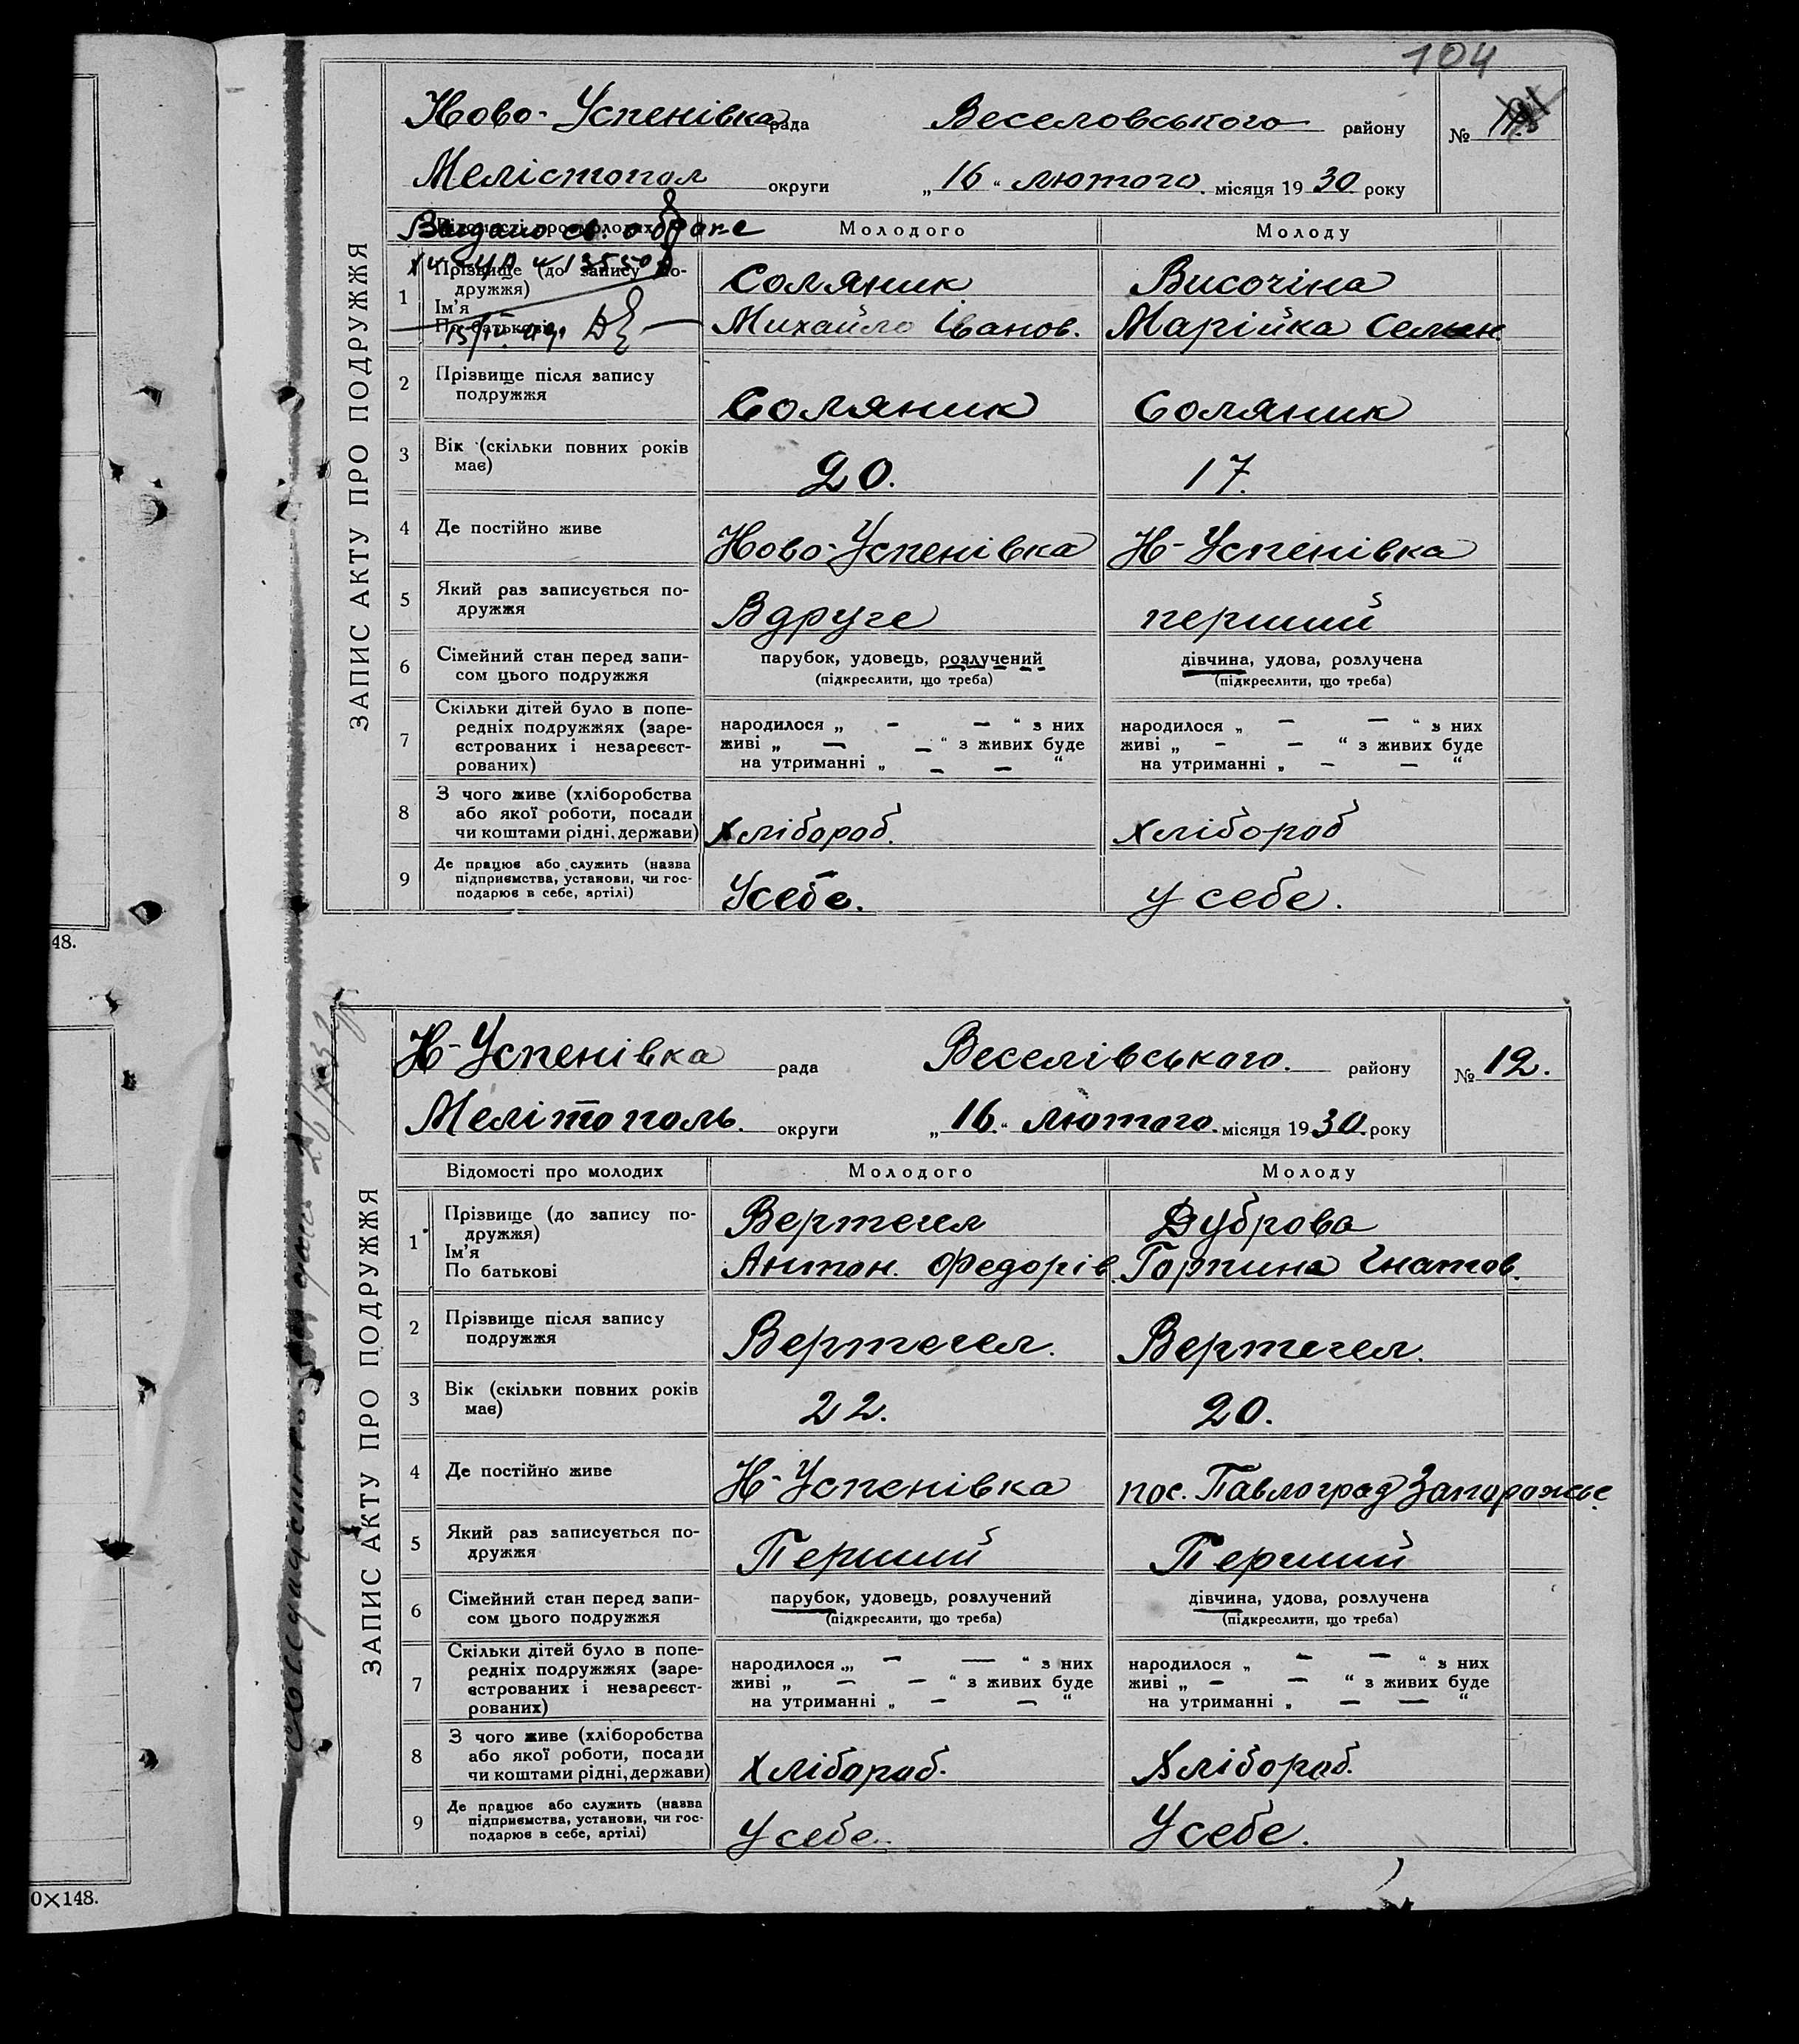 104
ЗАПИС АКТУ ПРО ПОДРУЖЖЯ
Ново-Успенівка рада Веселовського району №
Мелістопол округи „16“ лютого місяця 1930 року
Відомості про молодих Молодого Молоду
Видано св. о браке
1 Прізвище (до запису по-
дружжя)
Ім'я
По батькові
Соляник Височіна
Михайло Іванов. Марійка Семен.
2 Прізвище після запису
подружжя
Соляник Соляник
3 Вік (скільки повних років
має)
20. 17.
4 Де постійно живе Ново-Успенівка Н-Успенівка
5 Який раз записується по-
дружжя
Вдруге перший
6 Сімейний стан перед запи-
сом цього подружжя
парубок, удовець, розлучений дівчина, удова, розлучена
(підкреслити, що треба) (підкреслити, що треба)
7 Скільки дітей було в попе-
редніх подружжях (заре-
єстрованих і незареєст-
рованих)
народилося „ – – “ з них народилося „ – – “ з них
живі „ – – “ з живих буде живі „ – – “ з живих буде
на утриманні „ – – “ на утриманні „ – – “
8 З чого живе (хліборобства
або якої роботи, посади
чи коштами рідні, держави)
хлібороб. хлібороб
9 Де працює або служить (назва
підприємства, установи, чи гос-
подарює в себе, артілі)
Усебе. у себе.
48.
ЗАПИС АКТУ ПРО ПОДРУЖЖЯ
Н-Успенівка рада Веселівського. району № 12.
Мелітополь. округи „16.“ лютого. місяця 1930. року
Відомості про молодих Молодого Молоду
1 Прізвище (до запису по-
дружжя)
Ім'я
По батькові
Вертегел Дуброва
Антон. Федорів. Горпина Гнатов.
2 Прізвище після запису
подружжя
Вертегел. Вертегел.
3 Вік (скільки повних років
має)
22. 20.
4 Де постійно живе Н-Успенівка пос. Павлоград Запорожье
5 Який раз записується по-
дружжя
Перший Перший
6 Сімейний стан перед запи-
сом цього подружжя
парубок, удовець, розлучений дівчина, удова, розлучена
(підкреслити, що треба) (підкреслити, що треба)
7 Скільки дітей було в попе-
редніх подружжях (заре-
єстрованих і незареєст-
рованих)
народилося „ – – “ з них народилося „ – – “ з них
живі „ – – “ з живих буде живі „ – – “ з живих буде
на утриманні „ – – “ на утриманні „ – – “
8 З чого живе (хліборобства
або якої роботи, посади
чи коштами рідні, держави)
хлібороб. Хлібороб.
9 Де працює або служить (назва
підприємства, установи, чи гос-
подарює в себе, артілі)
У себе. Усебе.
0×148.